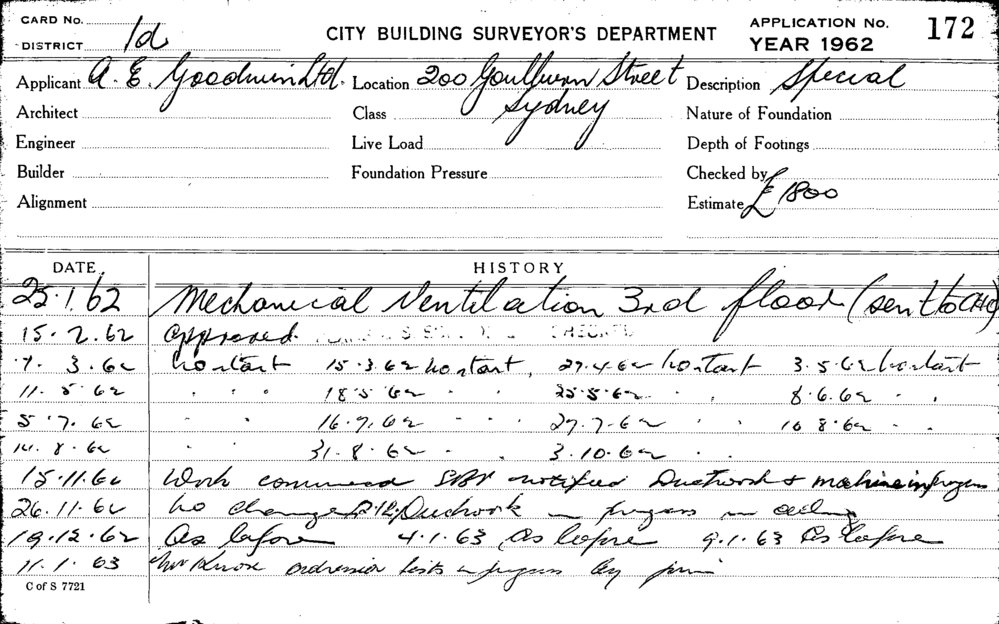 CARD No.
DISTRICT 1d
CITY BUILDING SURVEYOR'S DEPARTMENT
APPLICATION No. 172
YEAR 1962
Applicant A. E. Goodwin Ltd. Location 200 Goulburn Street Sydney Description Special
Architect Class Nature of Foundation
Engineer Live Load Depth of Footings
Builder Foundation Pressure Checked by
Alignment Estimate £1800
DATE HISTORY
25.1.62 Mechanical Ventilation 3rd floor (sent to CHO)
15.2.62 approved.
7.3.62 no start 15.3.62 no start, 27.4.62 no start 3.5.62 no start
11.5.62 " " 18.5.62 " 25.5.62 " " 8.6.62 " "
5.7.62 " " 16.7.62 " " 27.7.62 " " 10.8.62 " "
14.8.62 31.8.62 " " 3.10.62 " "
15.11.62 Work commenced notified Ductwork & machine in progress
26.11.62 No change 2.12. Ductwork in progress on ceiling
19.12.62 As before 4.1.63 As before 9.1.63 As before
11.1.63 Mr Knox tests in progress by
C of S 7721